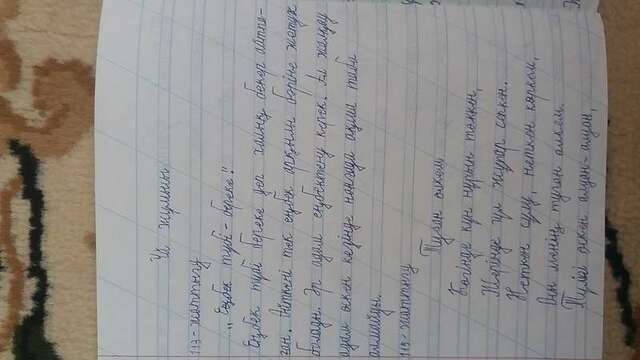 Үй жұмысы
113-жаттығу
„Еңбек түбі - береке!"
Еңбек түбі береке деп халық бекер айтпа-
ған. Өйткені тек еңбек арқылы бәріне жетуге
болады. Әр адам еңбектену керек. Ал жалқау
адам өскен кезінде нанғада ақша таба
алмайды.
115-жаттығу
Туған өлкем
Көгінде күн нұрын төккен,
Жерінде гүл жұпар сепкен.
Неткен сұлу, неткен көркем,
Осы менің туған өлкем.
Түлігі өскен алуан-алуан,